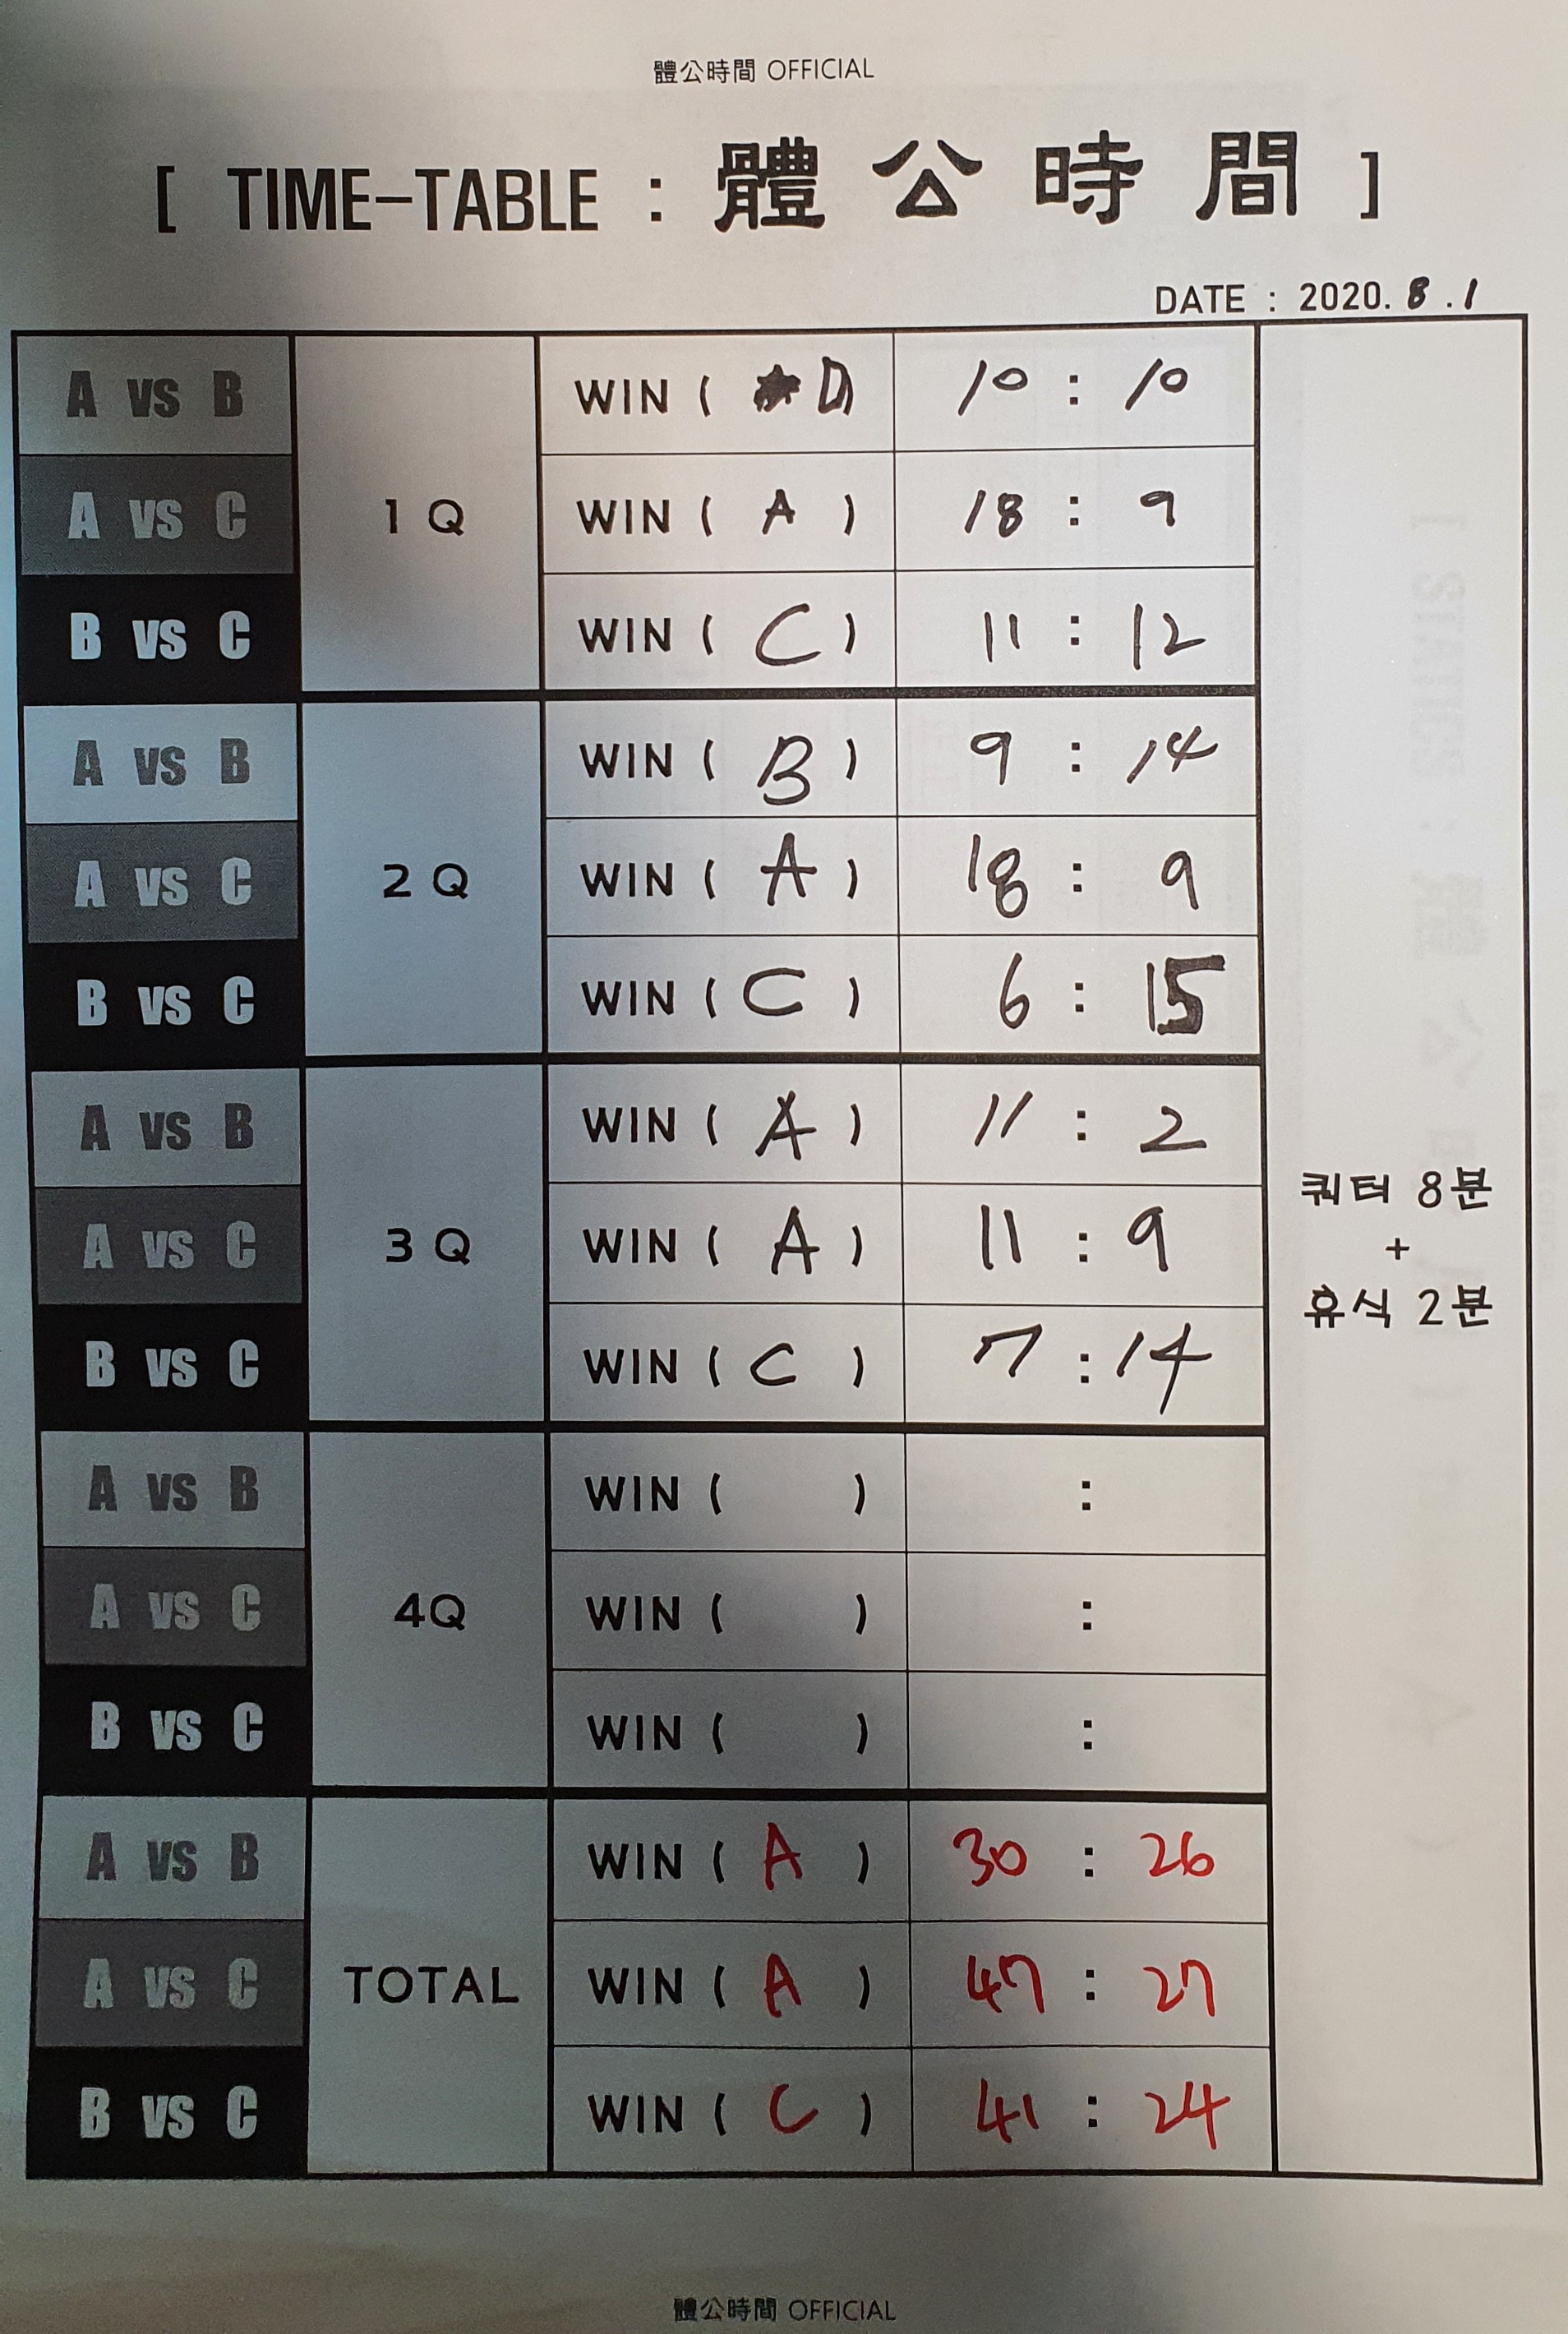 體公時間 OFFICIAL
[ TIME-TABLE : 體公時間 ]
DATE : 2020. 8 . 1
A vs B WIN ( D ) 10 : 10
A vs C 1 Q WIN ( A ) 18 : 9
B vs C WIN ( C ) 11 : 12
A vs B WIN ( B ) 9 : 14
A vs C 2 Q WIN ( A ) 18 : 9
B vs C WIN ( C ) 6 : 15
A vs B WIN ( A ) 11 : 2
쿼터 8분
A vs C 3 Q WIN ( A ) 11 : 9
+
휴식 2분
B vs C WIN ( C ) 7 : 14
A vs B WIN ( ) :
A vs C 4Q WIN ( ) :
B vs C WIN ( ) :
A vs B WIN ( A ) 30 : 26
A vs C TOTAL WIN ( A ) 47 : 27
B vs C WIN ( C ) 41 : 24
體公時間 OFFICIAL